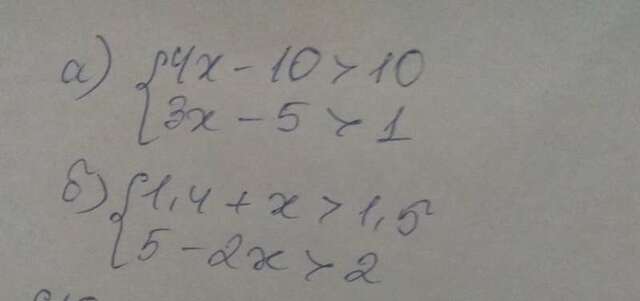 а) { 4x - 10 > 10
3x - 5 > 1
б) { 1,4 + x > 1,5
5 - 2x > 2